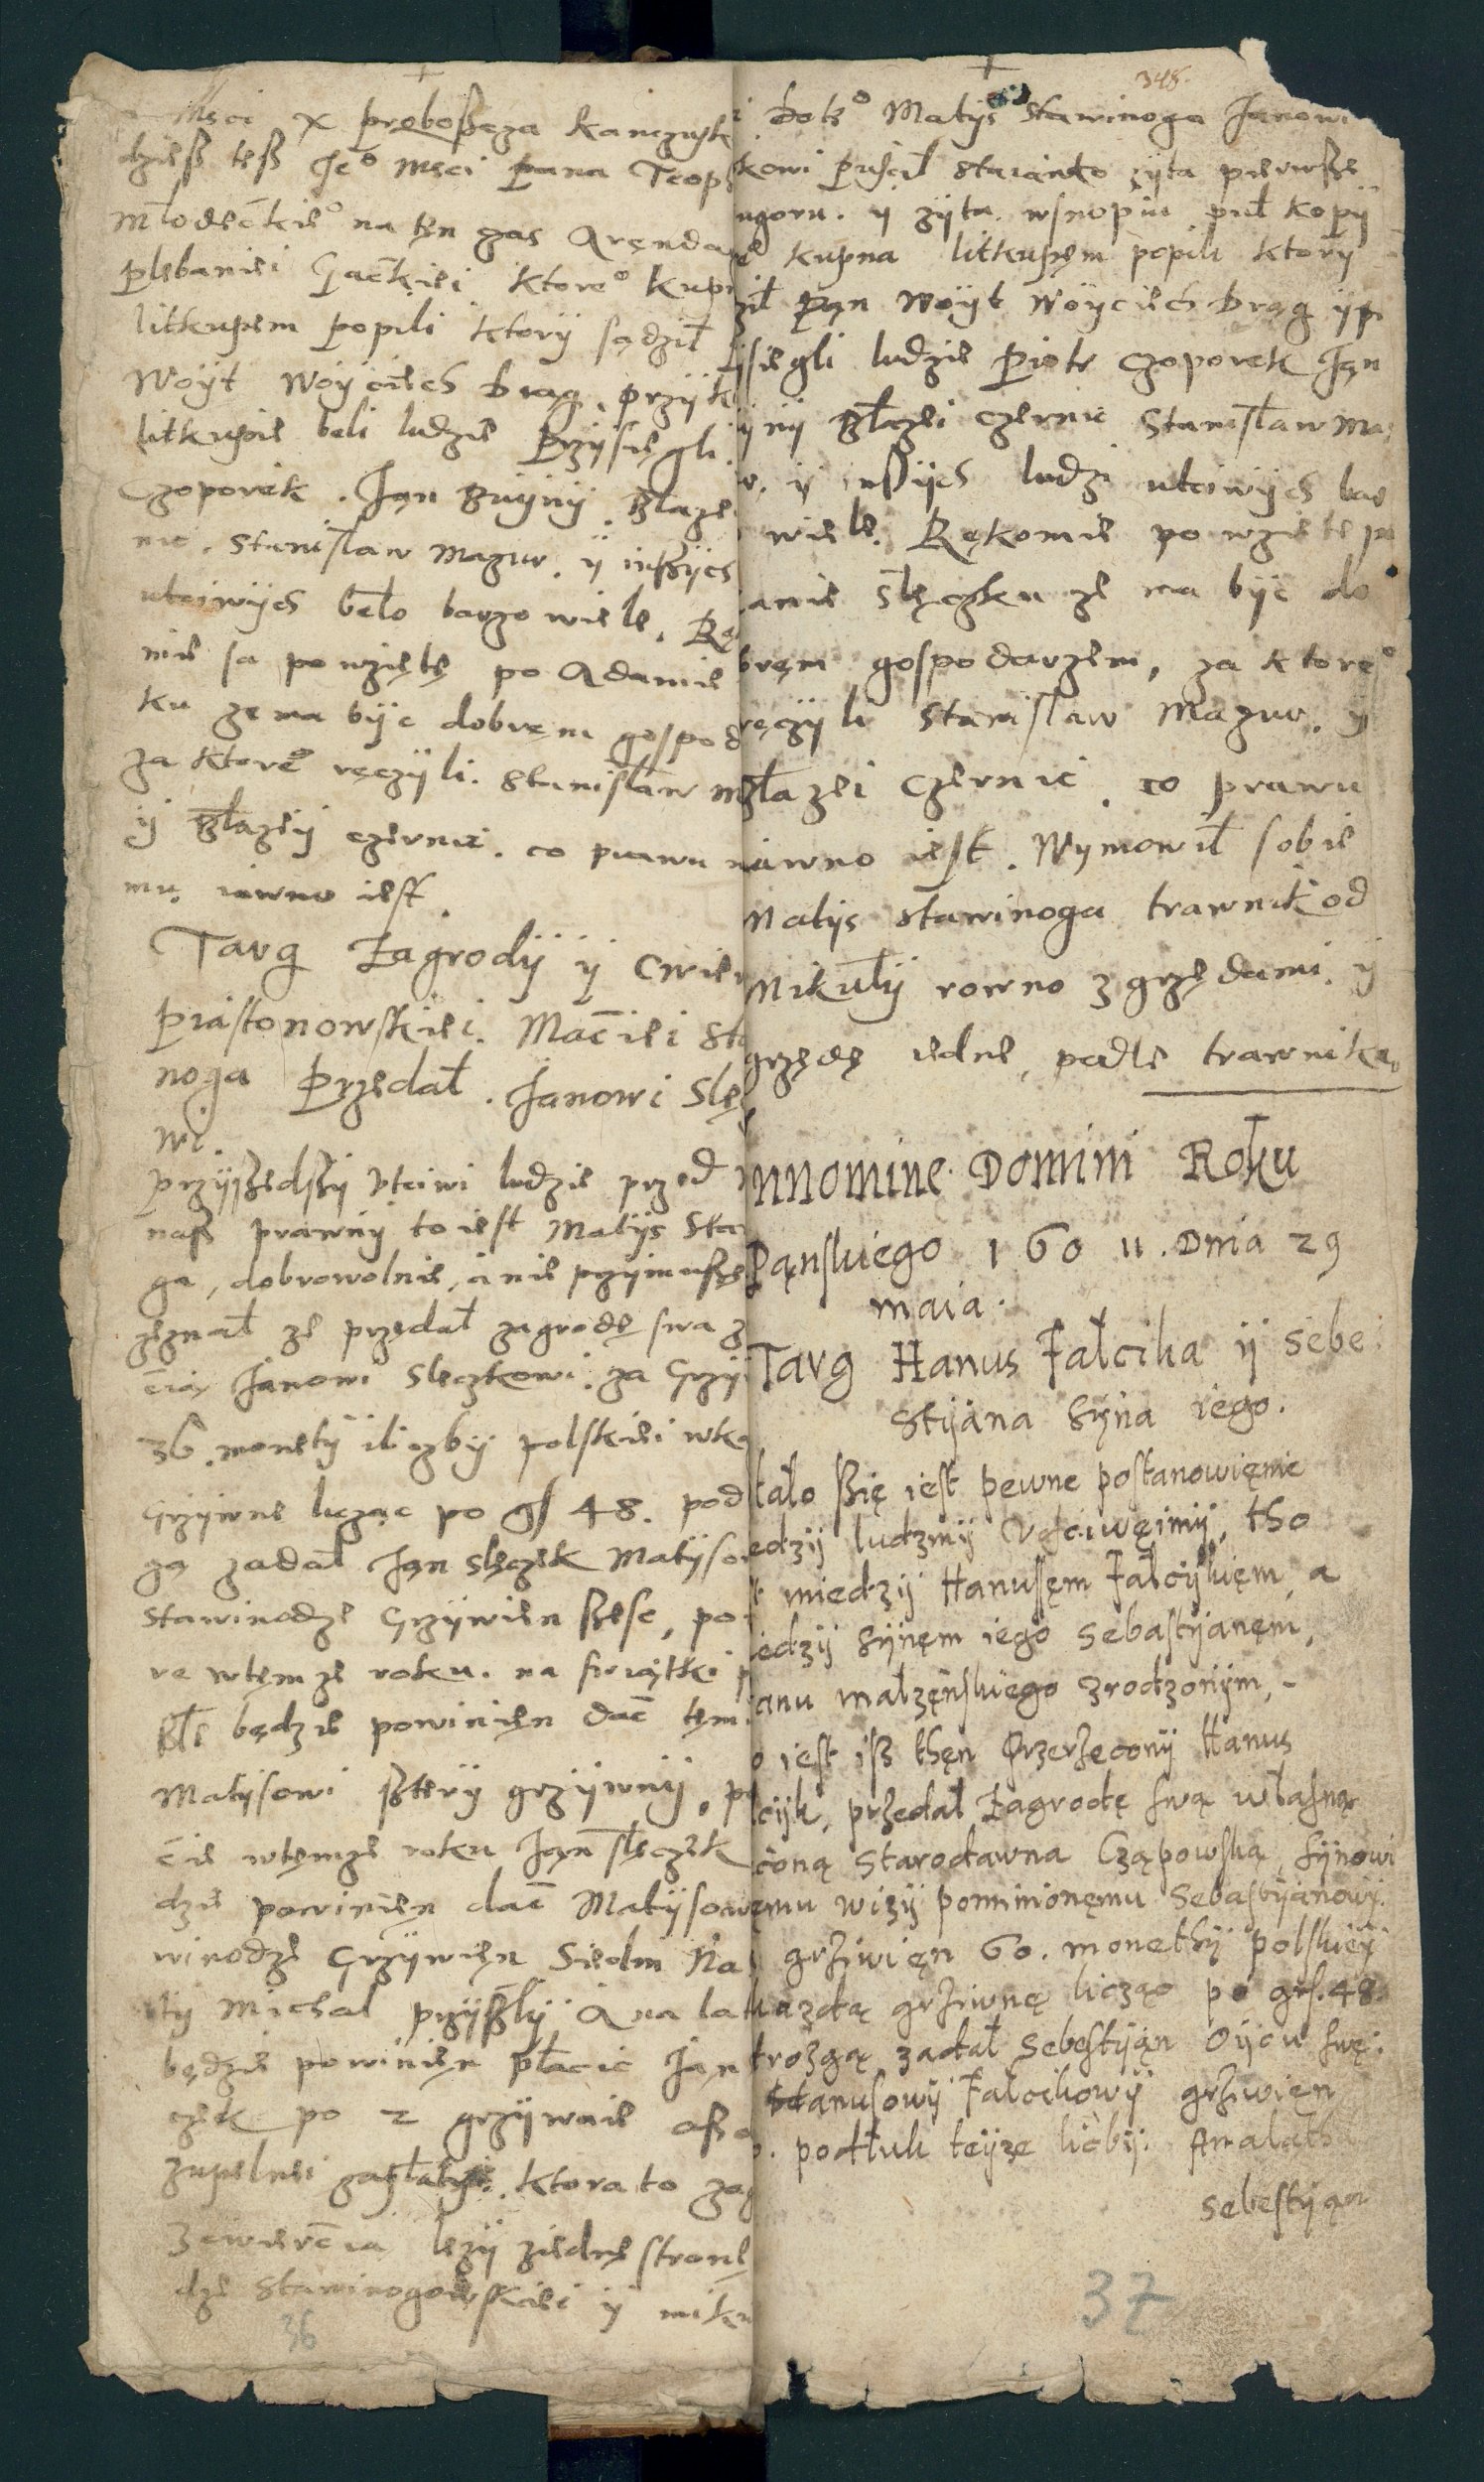 Mści x proboßcza kanczusk
dzieß teß Jeº Mści pana Teop
młodeckieº na tęn czas Aręnda
plebaniei Gackiei ktoreº kup
litkupem popili ktory sądził
Woyt Woyciech brag, przytе
litkupie beli ludzie Przysięgli
Czoporek. Jan Bujny. Błaze
nic. Stanisław Mazur. y inßych
utciwych beło barzo wiele. Rę
mie sa powzięte po Adamie
ku ze ma byc dobręm gospod
za ktoreº ręczyli. Stanisław M
y Błazey czernic. co prawu
mu iawno iest.
Targ Zagrody y Cwier
Piastonowskiei. Maciei Sta
noga Przedał. Janowi Slę
wi.
Przyßedßy Vtciwi ludzie przed
naß prawny to iest Matys Sta
ga, dobrowolnie, a nie przymuße
zeznał ze przedał zagrodę swa z
cią Janowi Slęczkowi. za Grzy
36. monety i liczby polskiei wka
Grzywne licząc po gſ 48. pod
gą zadał Jan Slęczek Matyso
Stawinodze Grzywien ßesc, po
re wtęmze roku. na swiątki p
ßłe będzie powinien dac tem
Matysowi ßtery grzywny, p
cie wtęmze roku Jan slęczek
dzie powinien dac Matysow
winodze Grzywien Siedm Na
ty Michal przyßły A na lat
będzie powinien płacic Jan
czek po 2 grzywnie aß
zupelnei zapłaty. ktora to zag
zcwiercia lezy ziedne strone
dze Stawinogowskiei y miku
36
348.
dotº Matys Stawinoga Janowi
kowi Puscił staianko zyta pierwße
ugoru. y zyta wsnopiu puł kopy
kupna litkupem popili ktory
ził Pan Woyt Woyciech brag y p
ysięgli ludzie Piotr Czoporek Jan
yny Błazei czernic Stanisław Ma
r. y inßych ludzi utciwych bar
wiele. Rękomie powziete p
anie Slęczku ze ma byc do
bręm gospodarzem, za ktoreº
ręczyli Stanisław Mazur. y
Błazei Czernic. co prawu
iawno iest. Wymowił sobie
Matys stawinoga trawnik od
Mikuły rowno z grzędami. y
grzędę iedne, podle trawnika
nnomine Domini Roku
Pąnskiego 1601. Dnia 29
maia.
Targ Hanus Falcika y Sebe
styana Syna iego.
tało ßię iest pewne postanowięnie
edzy ludzmy Vcćiwęimy, tho
t miedzy Hanusęm Falcykięm, a
iedzy Synęm iego Sebastyanęm,
anu małzęnskiego zrodzonym, -
o iest isz thęn Przerzeczony Hanus
lcyk, przedał Zagrodę swą własną
coną Starodawna Cząpowską, Synowi
emu wizy pomnionęmu Sebastyanowy.
grziwięn 60. monethy polskiey
kazdą grziwnę licząo po grſ. 48.
trozgą zadał Sebestyąn Oycu swę:
Hanusowy Falcikowy grziwien
podłuk teyze liczby. Analąth
Sebestyąn
37